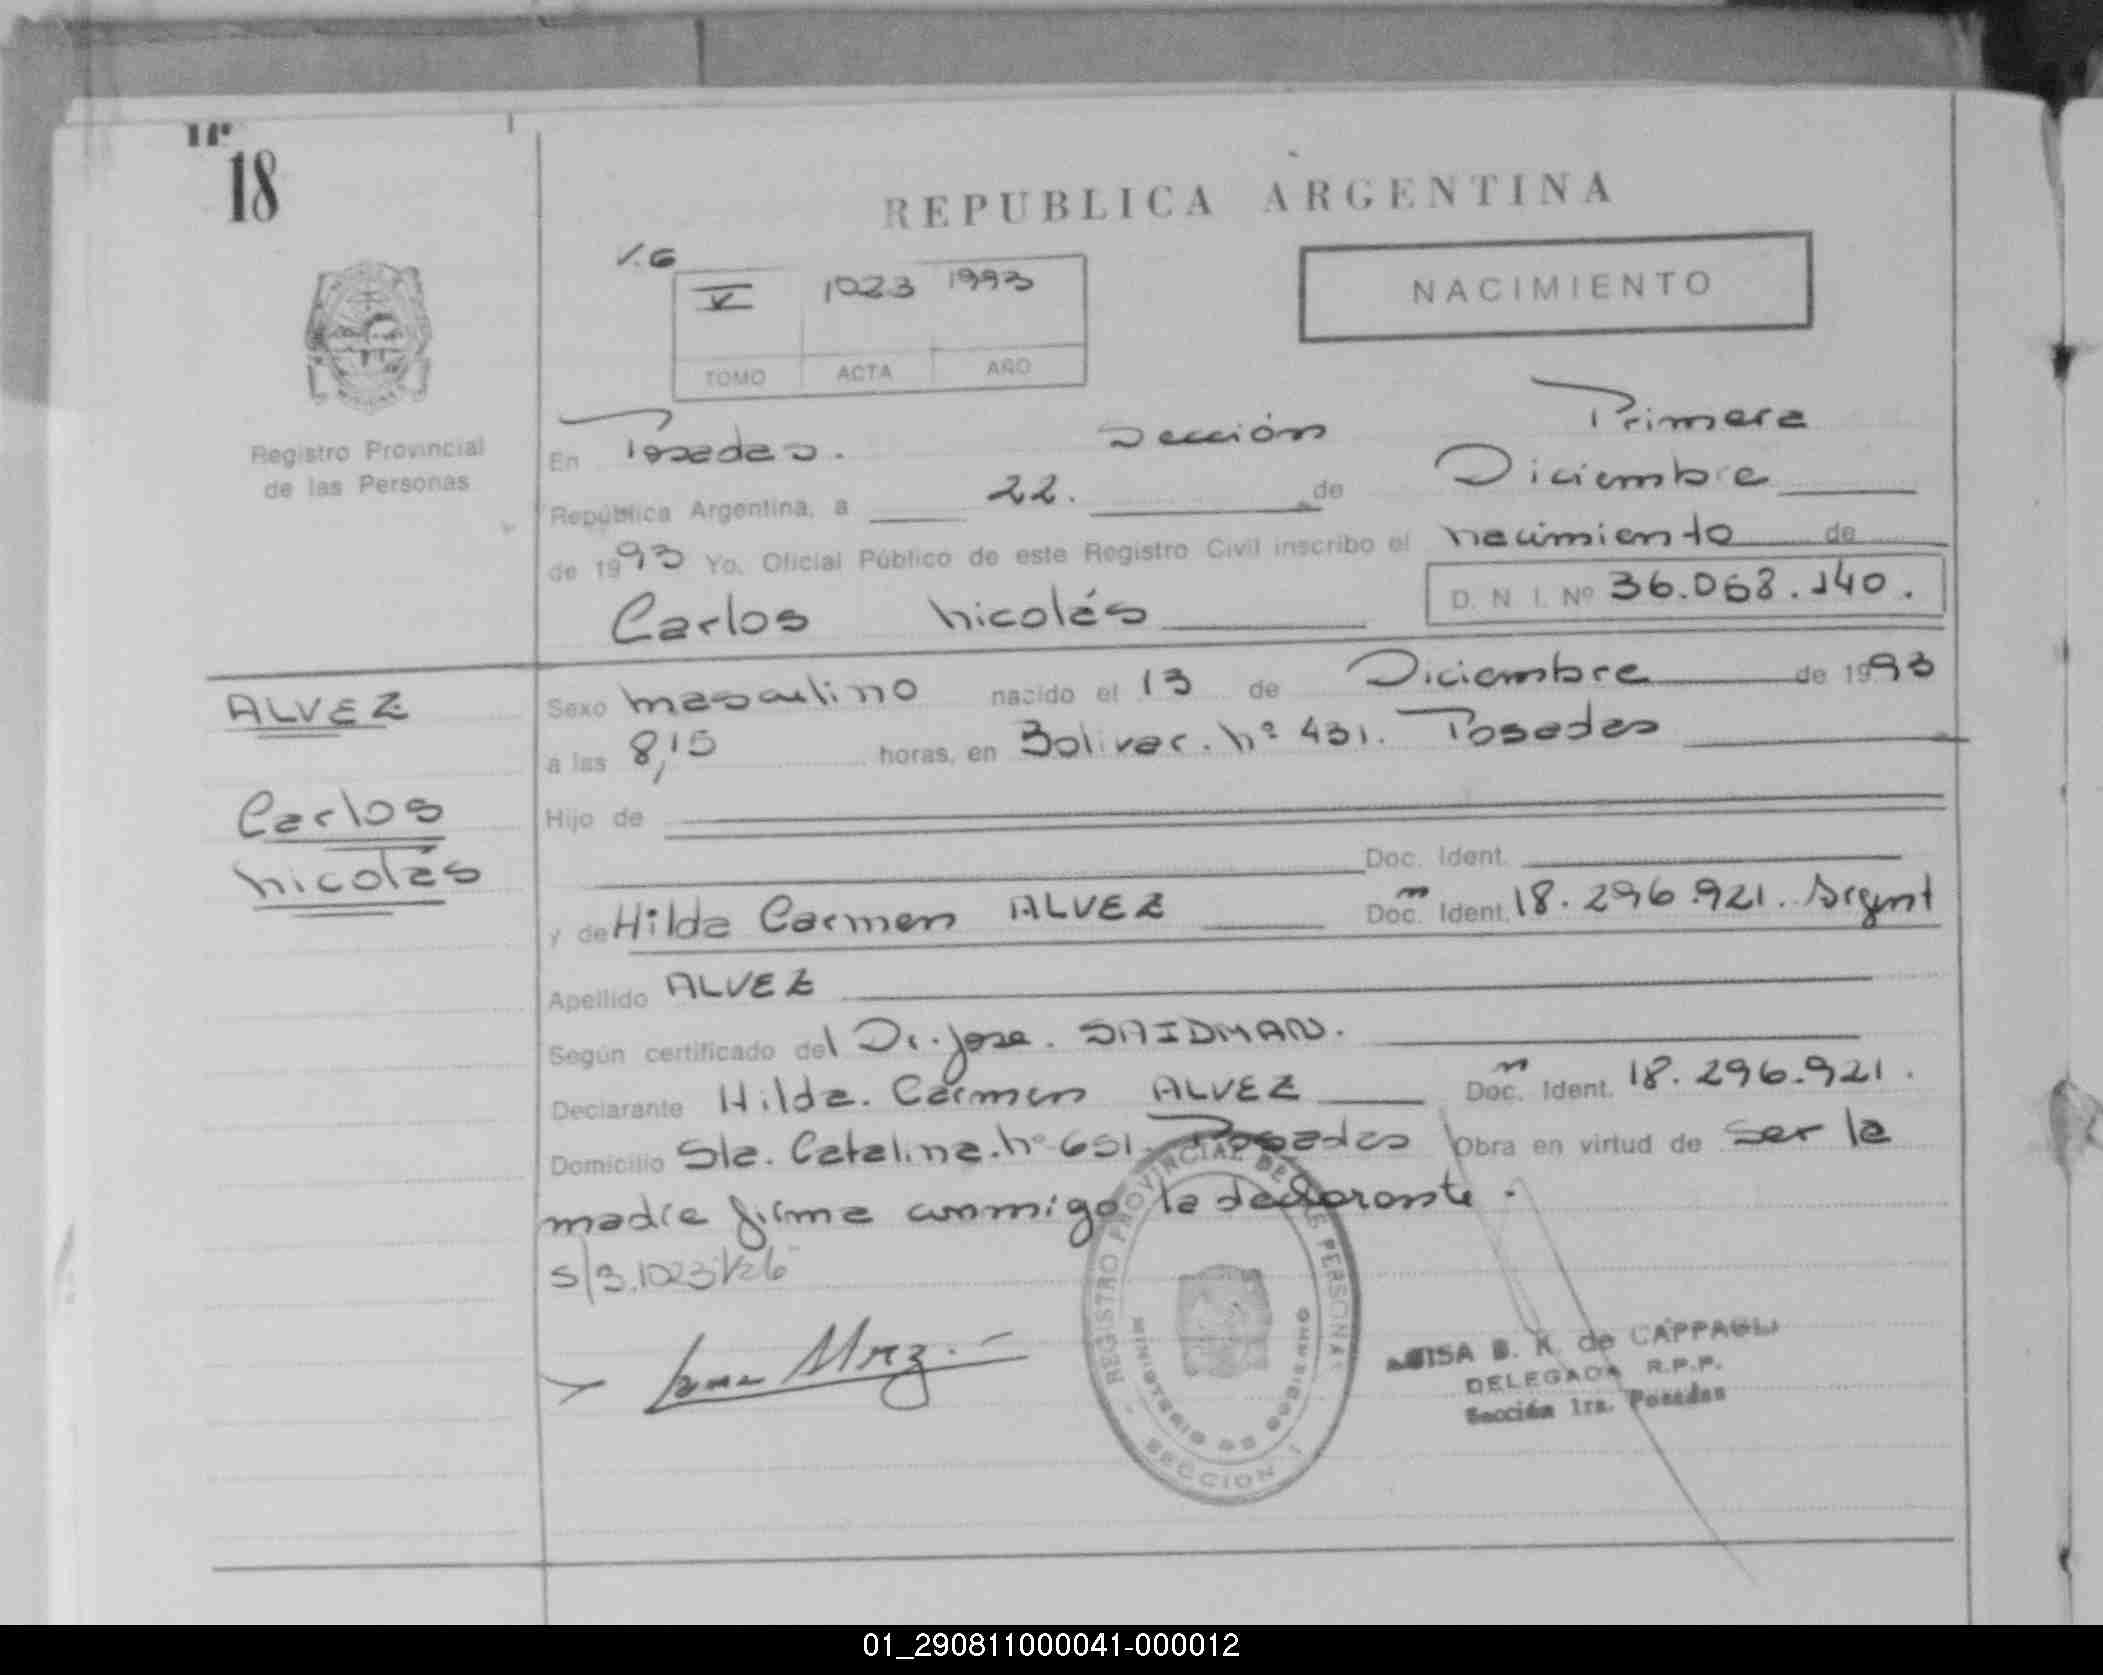 Nº
18
REPUBLICA ARGENTINA
V.G
V 1023 1993
TOMO ACTA AÑO
NACIMIENTO
Registro Provincial
de las Personas
En Posadas. Sección Primera
República Argentina, a 22. de Diciembre
de 1993 Yo, Oficial Público de este Registro Civil inscribo el nacimiento de
Carlos Nicolás D. N. I. Nº 36.068.140.
ALVEZ
Carlos
Nicolás
Sexo masculino nacido el 13 de Diciembre de 1993
a las 8,15 horas, en Bolivar. Nº 431. Posadas
Hijo de
Doc. Ident.
y de Hilda Carmen ALVEZ Doc. Ident. 18.296.921. Argent
Apellido ALVEZ
Según certificado del Dr. Jose. SAIDMAN.
Declarante Hilda. Carmen ALVEZ Doc. Ident. 18.296.921.
Domicilio Sta. Catalina. Nº 651. Posadas Obra en virtud de ser la
madre firma conmigo la declarante.
REGISTRO PROVINCIAL DE LAS PERSONAS
MINISTERIO DE GOBIERNO
SECCION 1
B. K. de CAPPAGLI
DELEGADA R.P.P.
Sección 1ra. Posadas
01_290811000041-000012